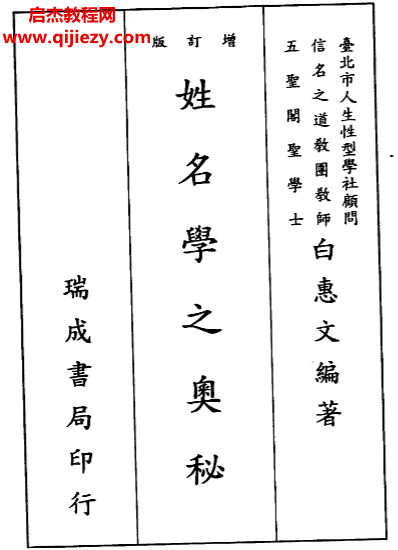 启杰教程网
www.qijiezy.com
臺北市人生性型學社顧問
信名之道教團教師
五聖閣聖學士
白惠文編著
增訂版
姓名學之奧秘
瑞成書局印行